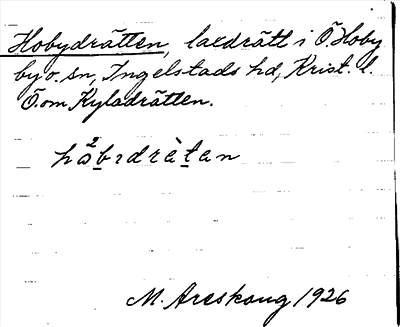 Hobydrätten, laxdrätt i Ö. Hoby
by o. sn, Ingelstads hd, Krist. l.
Ö. om Kyladrätten.
M. Areskoug 1926